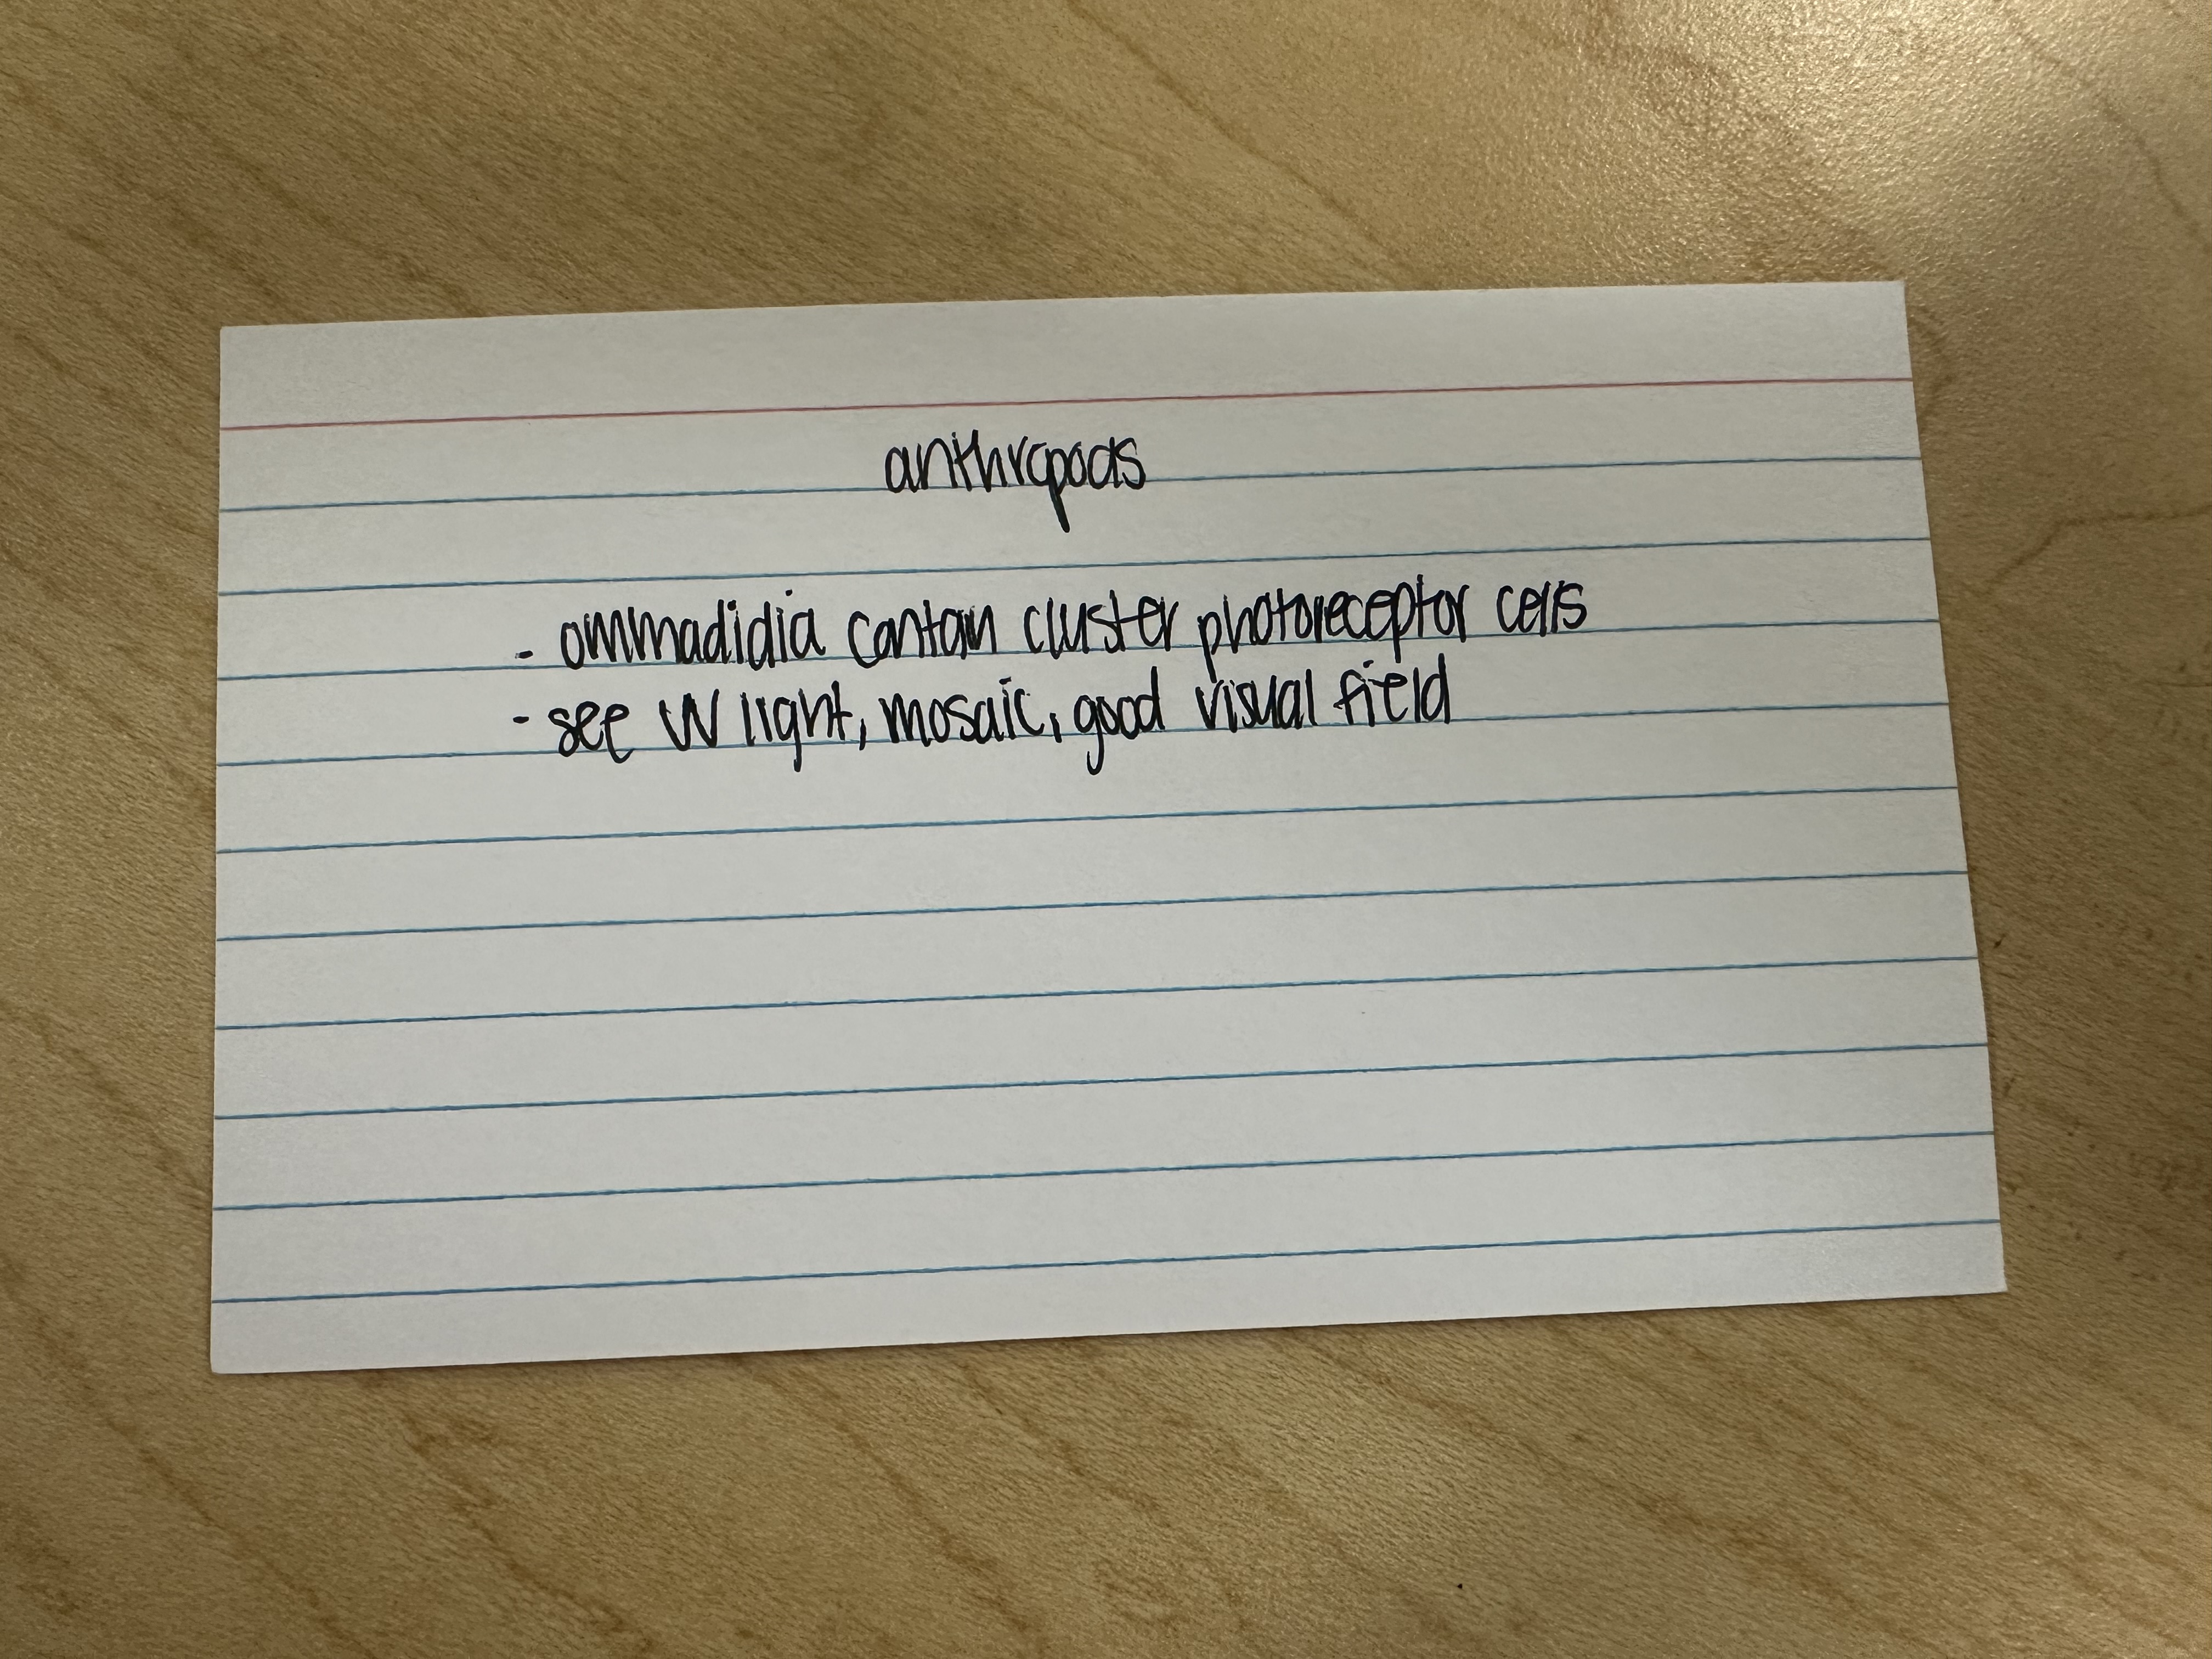 anthropods
- ommadidia contain cluster photoreceptor cells
- see UV light, mosaic, good visual field